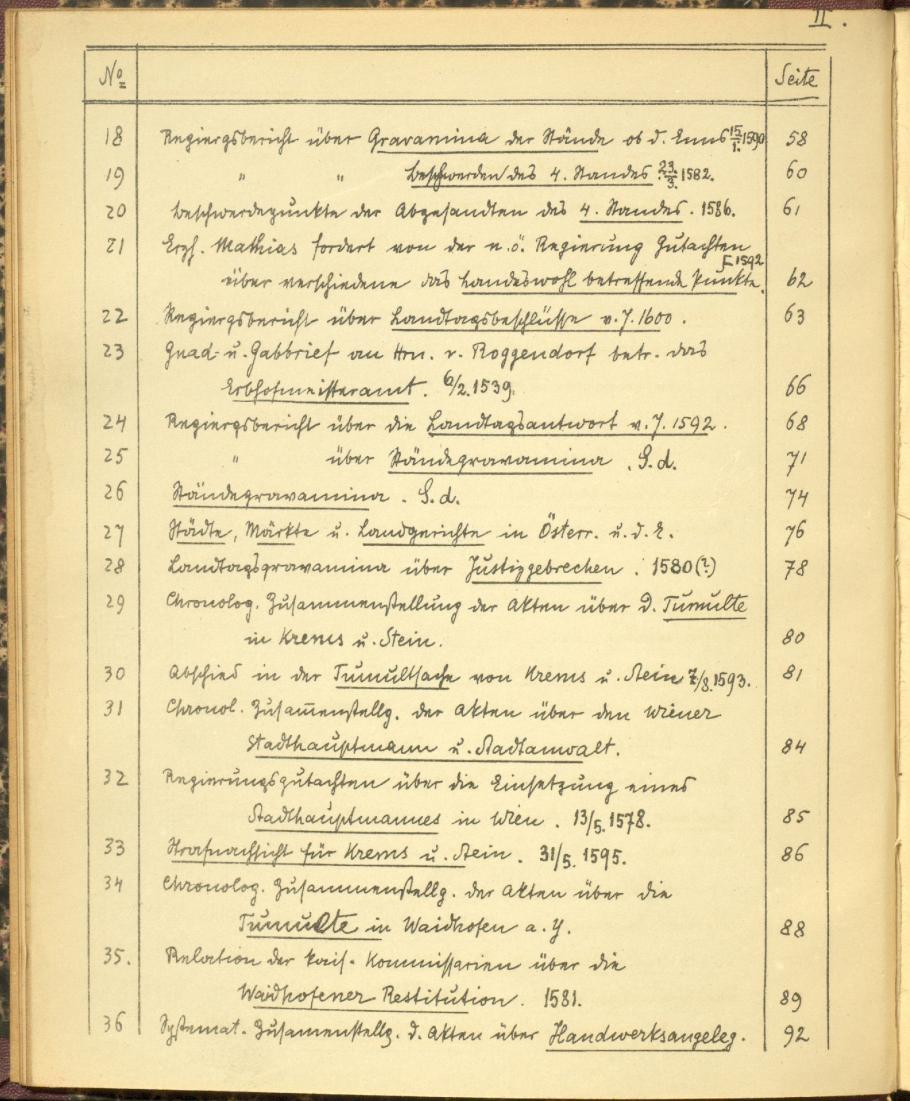 II.
No Seite
18 Regiergsbericht über Gravamina der Stände ob d. Enns 15/1. 1590 58
19 " " Beschwerden des 4. Standes 23/3. 1582. 60
20 Beschwerdepunkte der Abgesandten des 4. Standes. 1586. 61
21 Erzh. Mathias fordert von der n. ö. Regierung Gutachten
über verschiedene das Landeswohl betreffende Punkte. 1592 62
22 Regiergsbericht über Landtagsbeschlüsse v. J. 1600. 63
23 Gnad- u. Gabbrief an Hrn. v. Roggendorf betr. das
Erbhofmeisteramt. 6/2. 1539. 66
24 Regiergsbericht über die Landtagsantwort v. J. 1592. 68
25 " über Ständegravamina. S. d. 71
26 Ständegravamina. S. d. 74
27 Städte, Märkte u. Landgerichte in Österr. u. d. E. 76
28 Landtagsgravamina über Justizgebrechen. 1580 (?) 78
29 Chronolog. Zusammenstellung der Akten über d. Tumulte
in Krems u. Stein. 80
30 Abschied in der Tumultsache von Krems u. Stein 7/8. 1593. 81
31 Chronol. Zusam̅enstellg. der Akten über den Wiener
Stadthauptmann u. Stadtanwalt. 84
32 Regierungsgutachten über die Einsetzung eines
Stadthauptmannes in Wien. 13/5. 1578. 85
33 Strafnachsicht für Krems u. Stein. 31/5. 1595. 86
34 Chronolog. Zusammenstellg. der Akten über die
Tumulte in Waidhofen a. Y. 88
35. Relation der kais. Kommissarien über die
Waidhofener Restitution. 1581. 89
36 Systemat. Zusamenstellg. d. Akten über Handwerksangeleg. 92